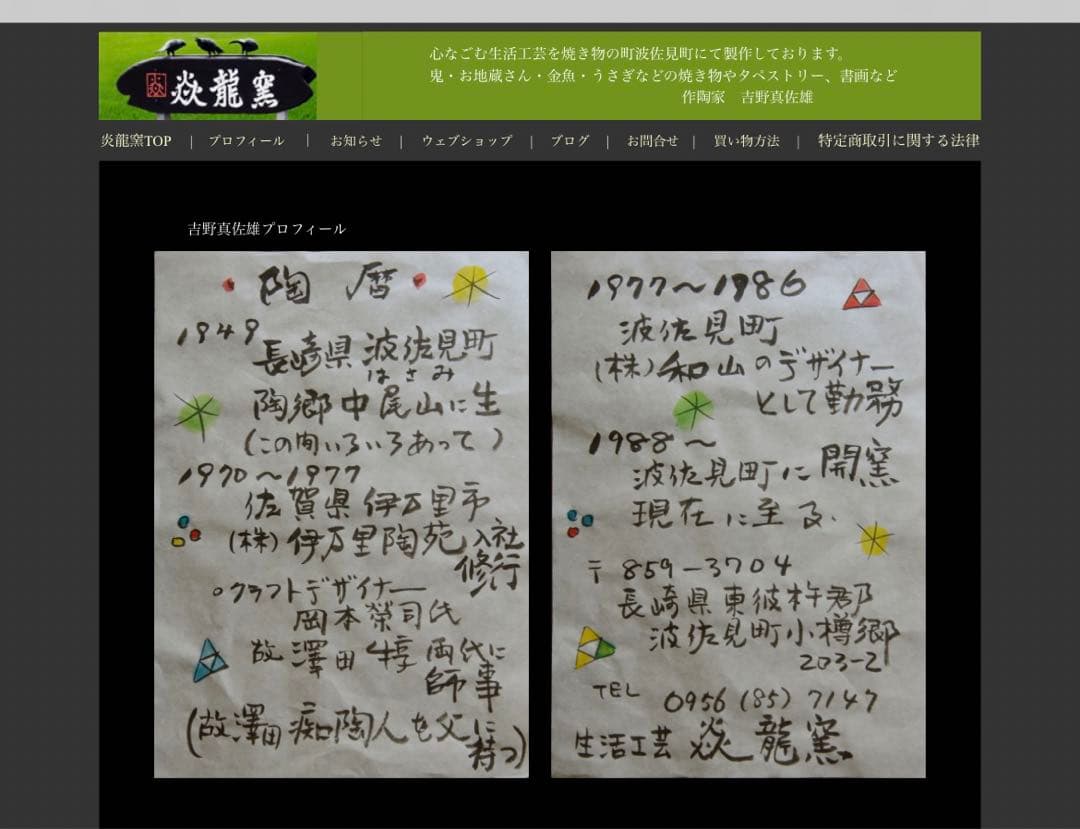 焱龍窯
心なごむ生活工芸を焼き物の町波佐見町にて製作しております。
鬼・お地蔵さん・金魚・うさぎなどの焼き物やタペストリー、書画など
作陶家　吉野真佐雄
炎龍窯TOP | プロフィール | お知らせ | ウェブショップ | ブログ | お問合せ | 買い物方法 | 特定商取引に関する法律
吉野真佐雄プロフィール
陶 暦
1949
長崎県 波佐見町
はさみ
陶郷中尾山に生
(この間いろいろあって)
1970〜1977
佐賀県伊万里市
(株)伊万里陶苑入社
修行
○クラフトデザイナー
岡本榮司氏
故 澤田 惇 両代に
師事
(故澤田痴陶人を父に
持つ)
1977〜1986
波佐見町
(株)和山のデザイナー
として勤務
1988〜
波佐見町に開窯
現在に至る.
〒859-3704
長崎県東彼杵郡
波佐見町小樽郷
203-2
TEL 0956(85)7147
生活工芸 焱龍窯